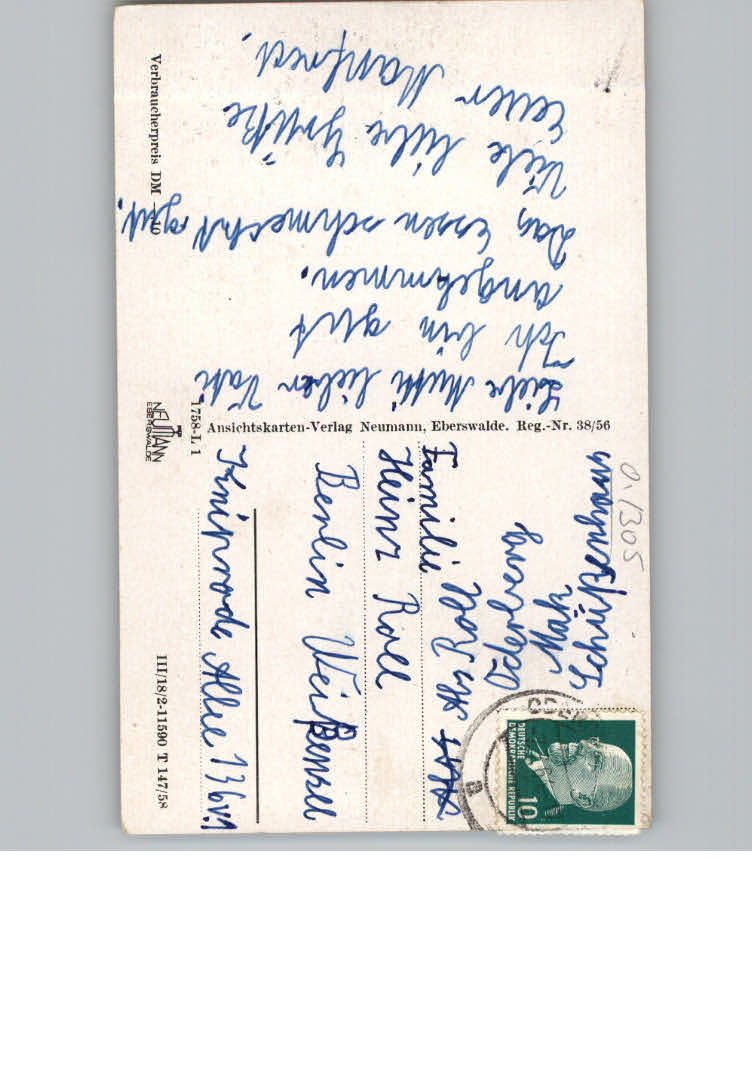 Liebe Mutti lieber Vati
Ich bin gut
angekommen.
Das Essen schmeckt gut.
Viele liebe Grüße
Euer Manfred.
Verbraucherpreis DM
NEUMANN
EBERSWALDE
1758-L 1
Ansichtskarten-Verlag Neumann, Eberswalde. Reg.-Nr. 38/56
0.1305
Schüßenhaus
Mak
Oderberg
Familie
Heinz Roll
Berlin Weißensee
Kniprode Allee 136 v.1
III/18/2-11590 T 147/58
DEUTSCHE
DEMOKRATISCHE REPUBLIK
10
a